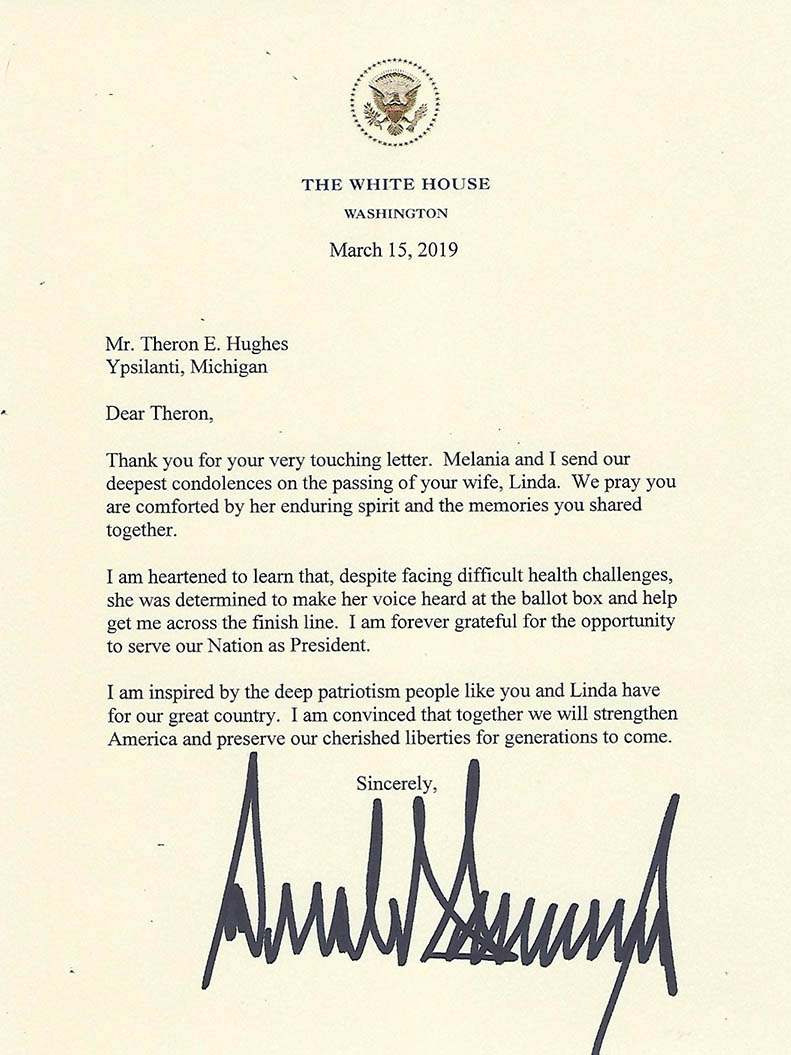 THE WHITE HOUSE
WASHINGTON
March 15, 2019
Mr. Theron E. Hughes
Ypsilanti, Michigan
Dear Theron,
Thank you for your very touching letter.  Melania and I send our
deepest condolences on the passing of your wife, Linda.  We pray you
are comforted by her enduring spirit and the memories you shared
together.
I am heartened to learn that, despite facing difficult health challenges,
she was determined to make her voice heard at the ballot box and help
get me across the finish line.  I am forever grateful for the opportunity
to serve our Nation as President.
I am inspired by the deep patriotism people like you and Linda have
for our great country.  I am convinced that together we will strengthen
America and preserve our cherished liberties for generations to come.
Sincerely,